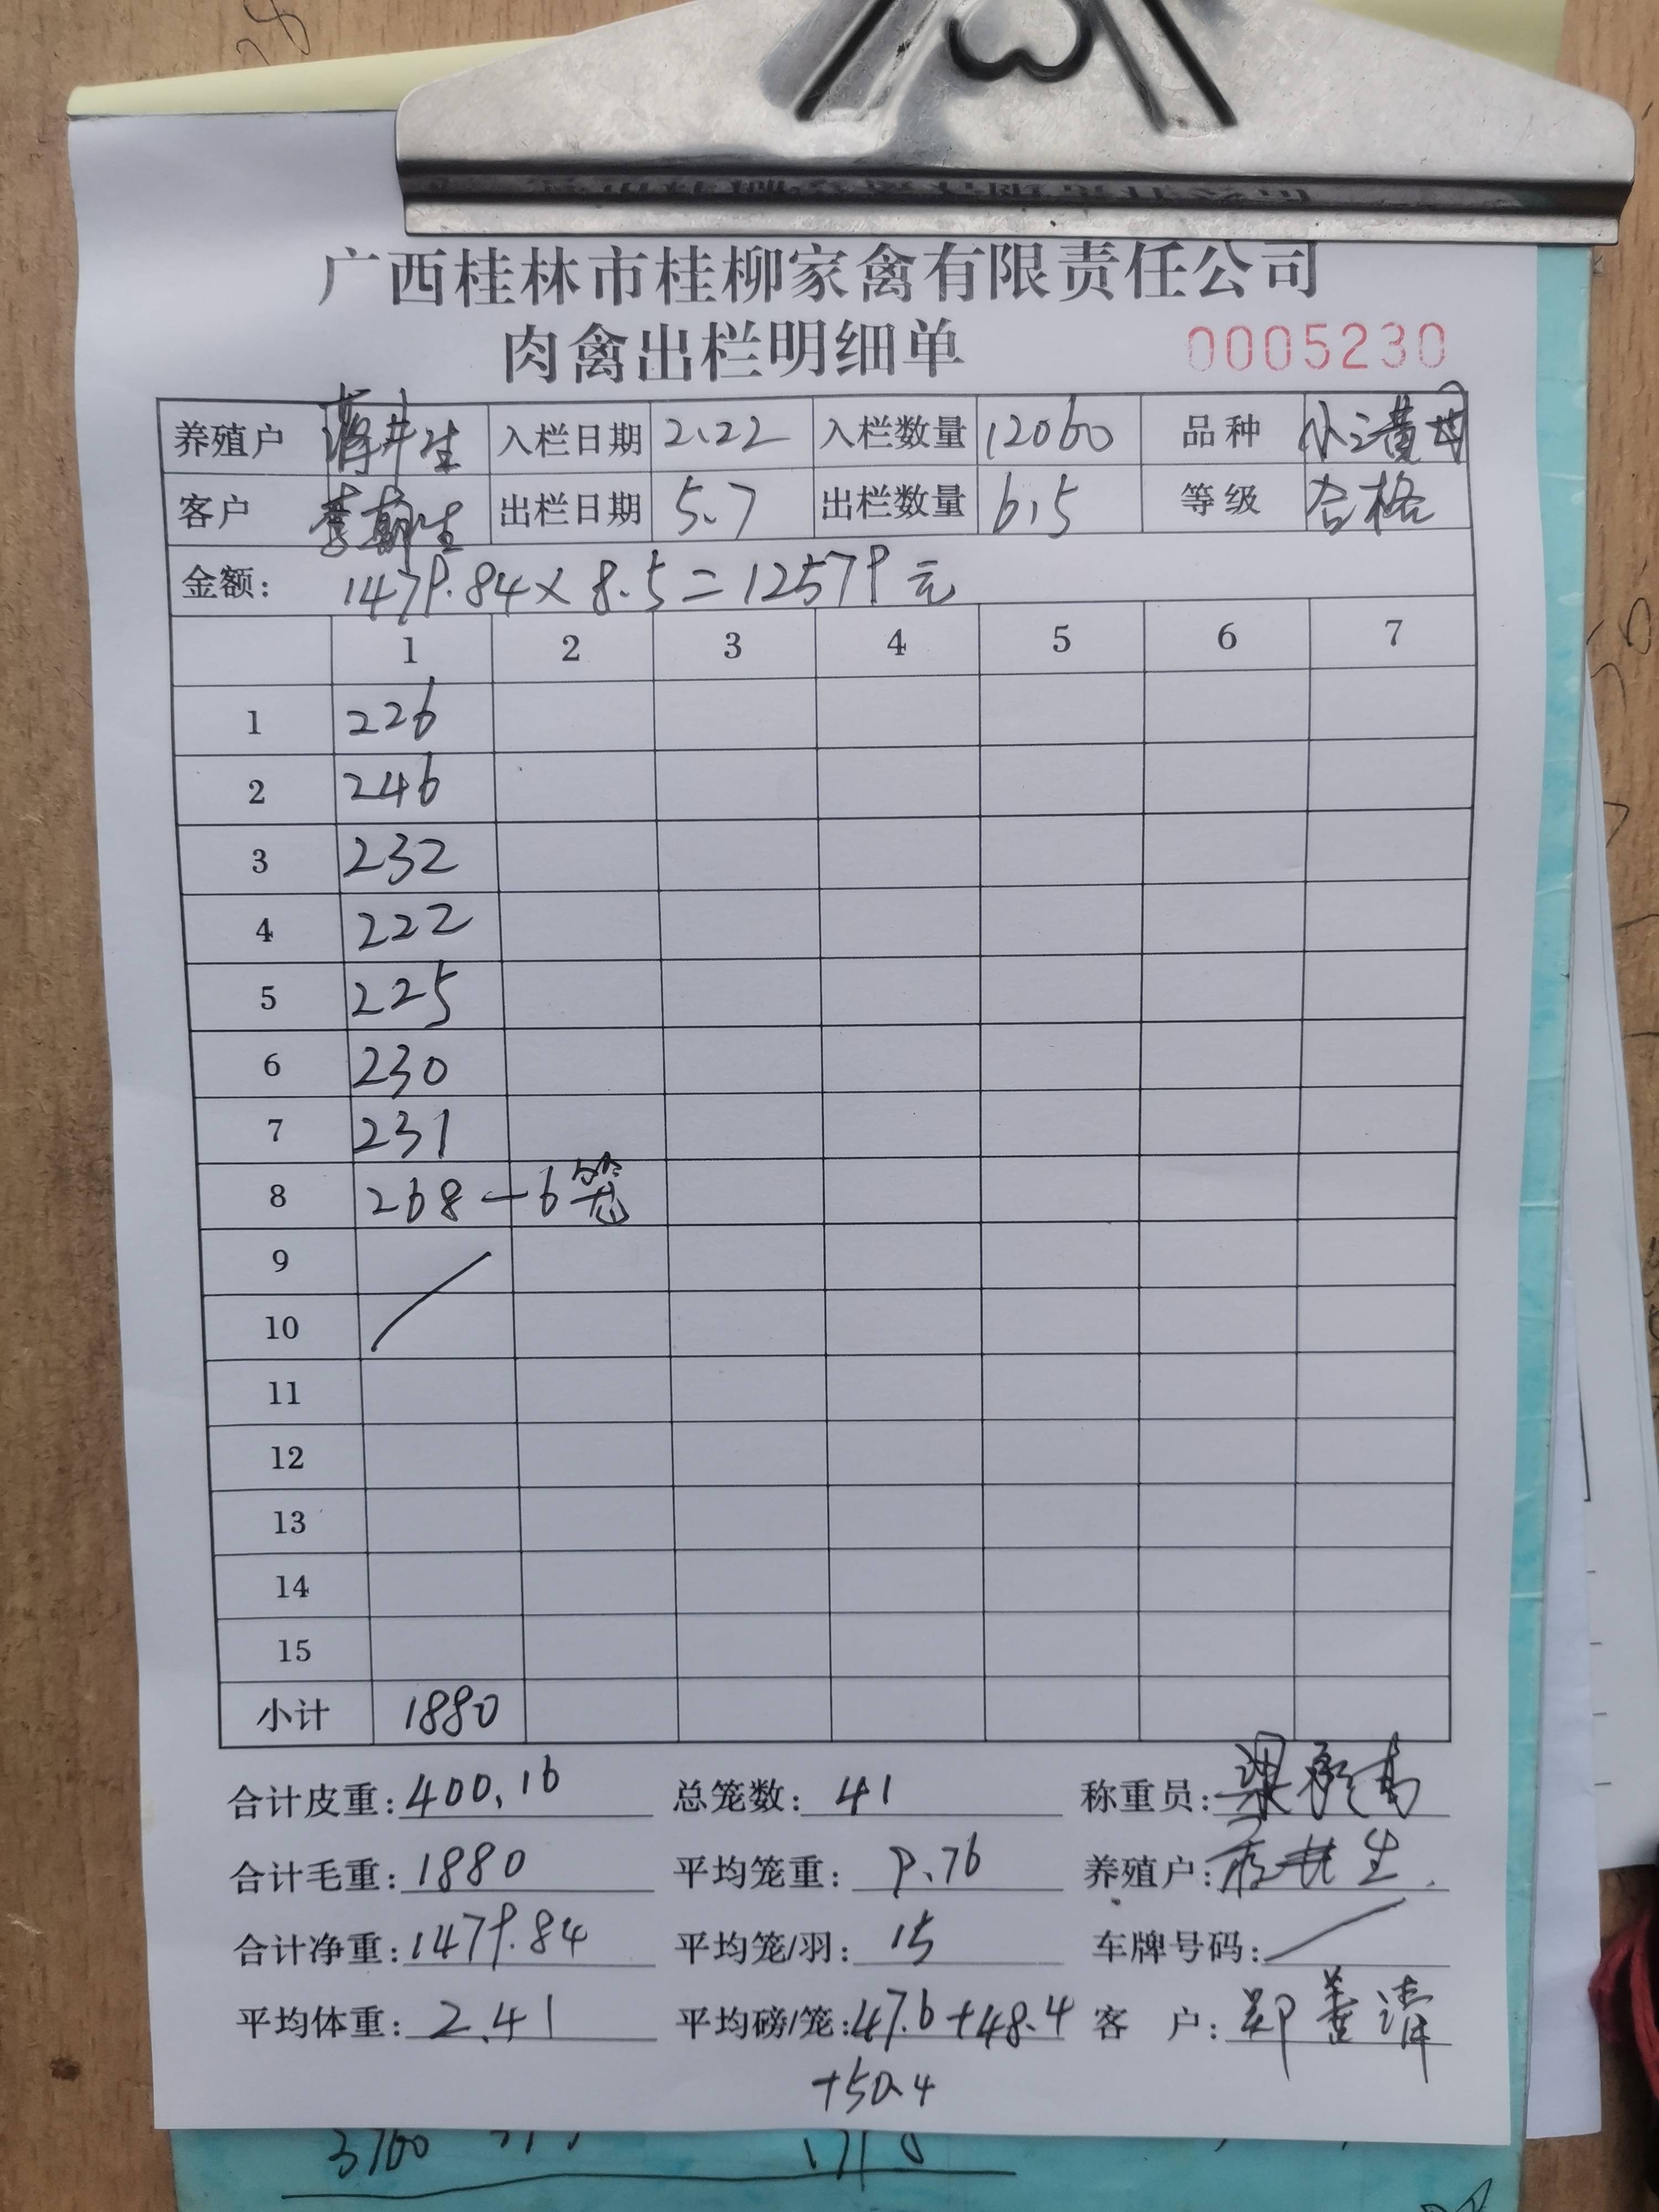 广西桂林市桂柳家禽有限责任公司
肉禽出栏明细单 0005230
养殖户 蒋井生 入栏日期 2.22 入栏数量 12060 品种 小三黄母
客户 出栏日期 5.7 出栏数量 615 等级 合格
金额: 1479.84×8.5=12579元
1 2 3 4 5 6 7
1 226
2 246
3 232
4 222
5 225
6 230
7 231
8 268-6笼
9
10
11
12
13
14
15
小计 1880
合计皮重: 400.16 总笼数: 41 称重员:
合计毛重: 1880 平均笼重: 9.76 养殖户:
合计净重: 1479.84 平均笼/羽: 15 车牌号码:
平均体重: 2.41 平均磅/笼: 47.6+48.4 客 户: 郑善清
+50.4
3760